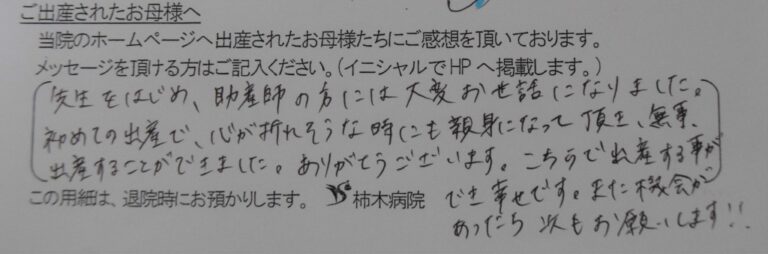 ご出産されたお母様へ
当院のホームページへ出産されたお母様たちにご感想を頂いております。
メッセージを頂ける方はご記入ください。(イニシャルでHPへ掲載します。)
先生をはじめ、助産師の方には大変お世話になりました。
初めての出産で、心が折れそうな時にも親身になって頂き、無事、
出産することができました。ありがとうございます。こちらで出産する事が
でき幸せです。また機会が
あったら次もお願いします!!
この用細は、退院時にお預かりします。 柿木病院